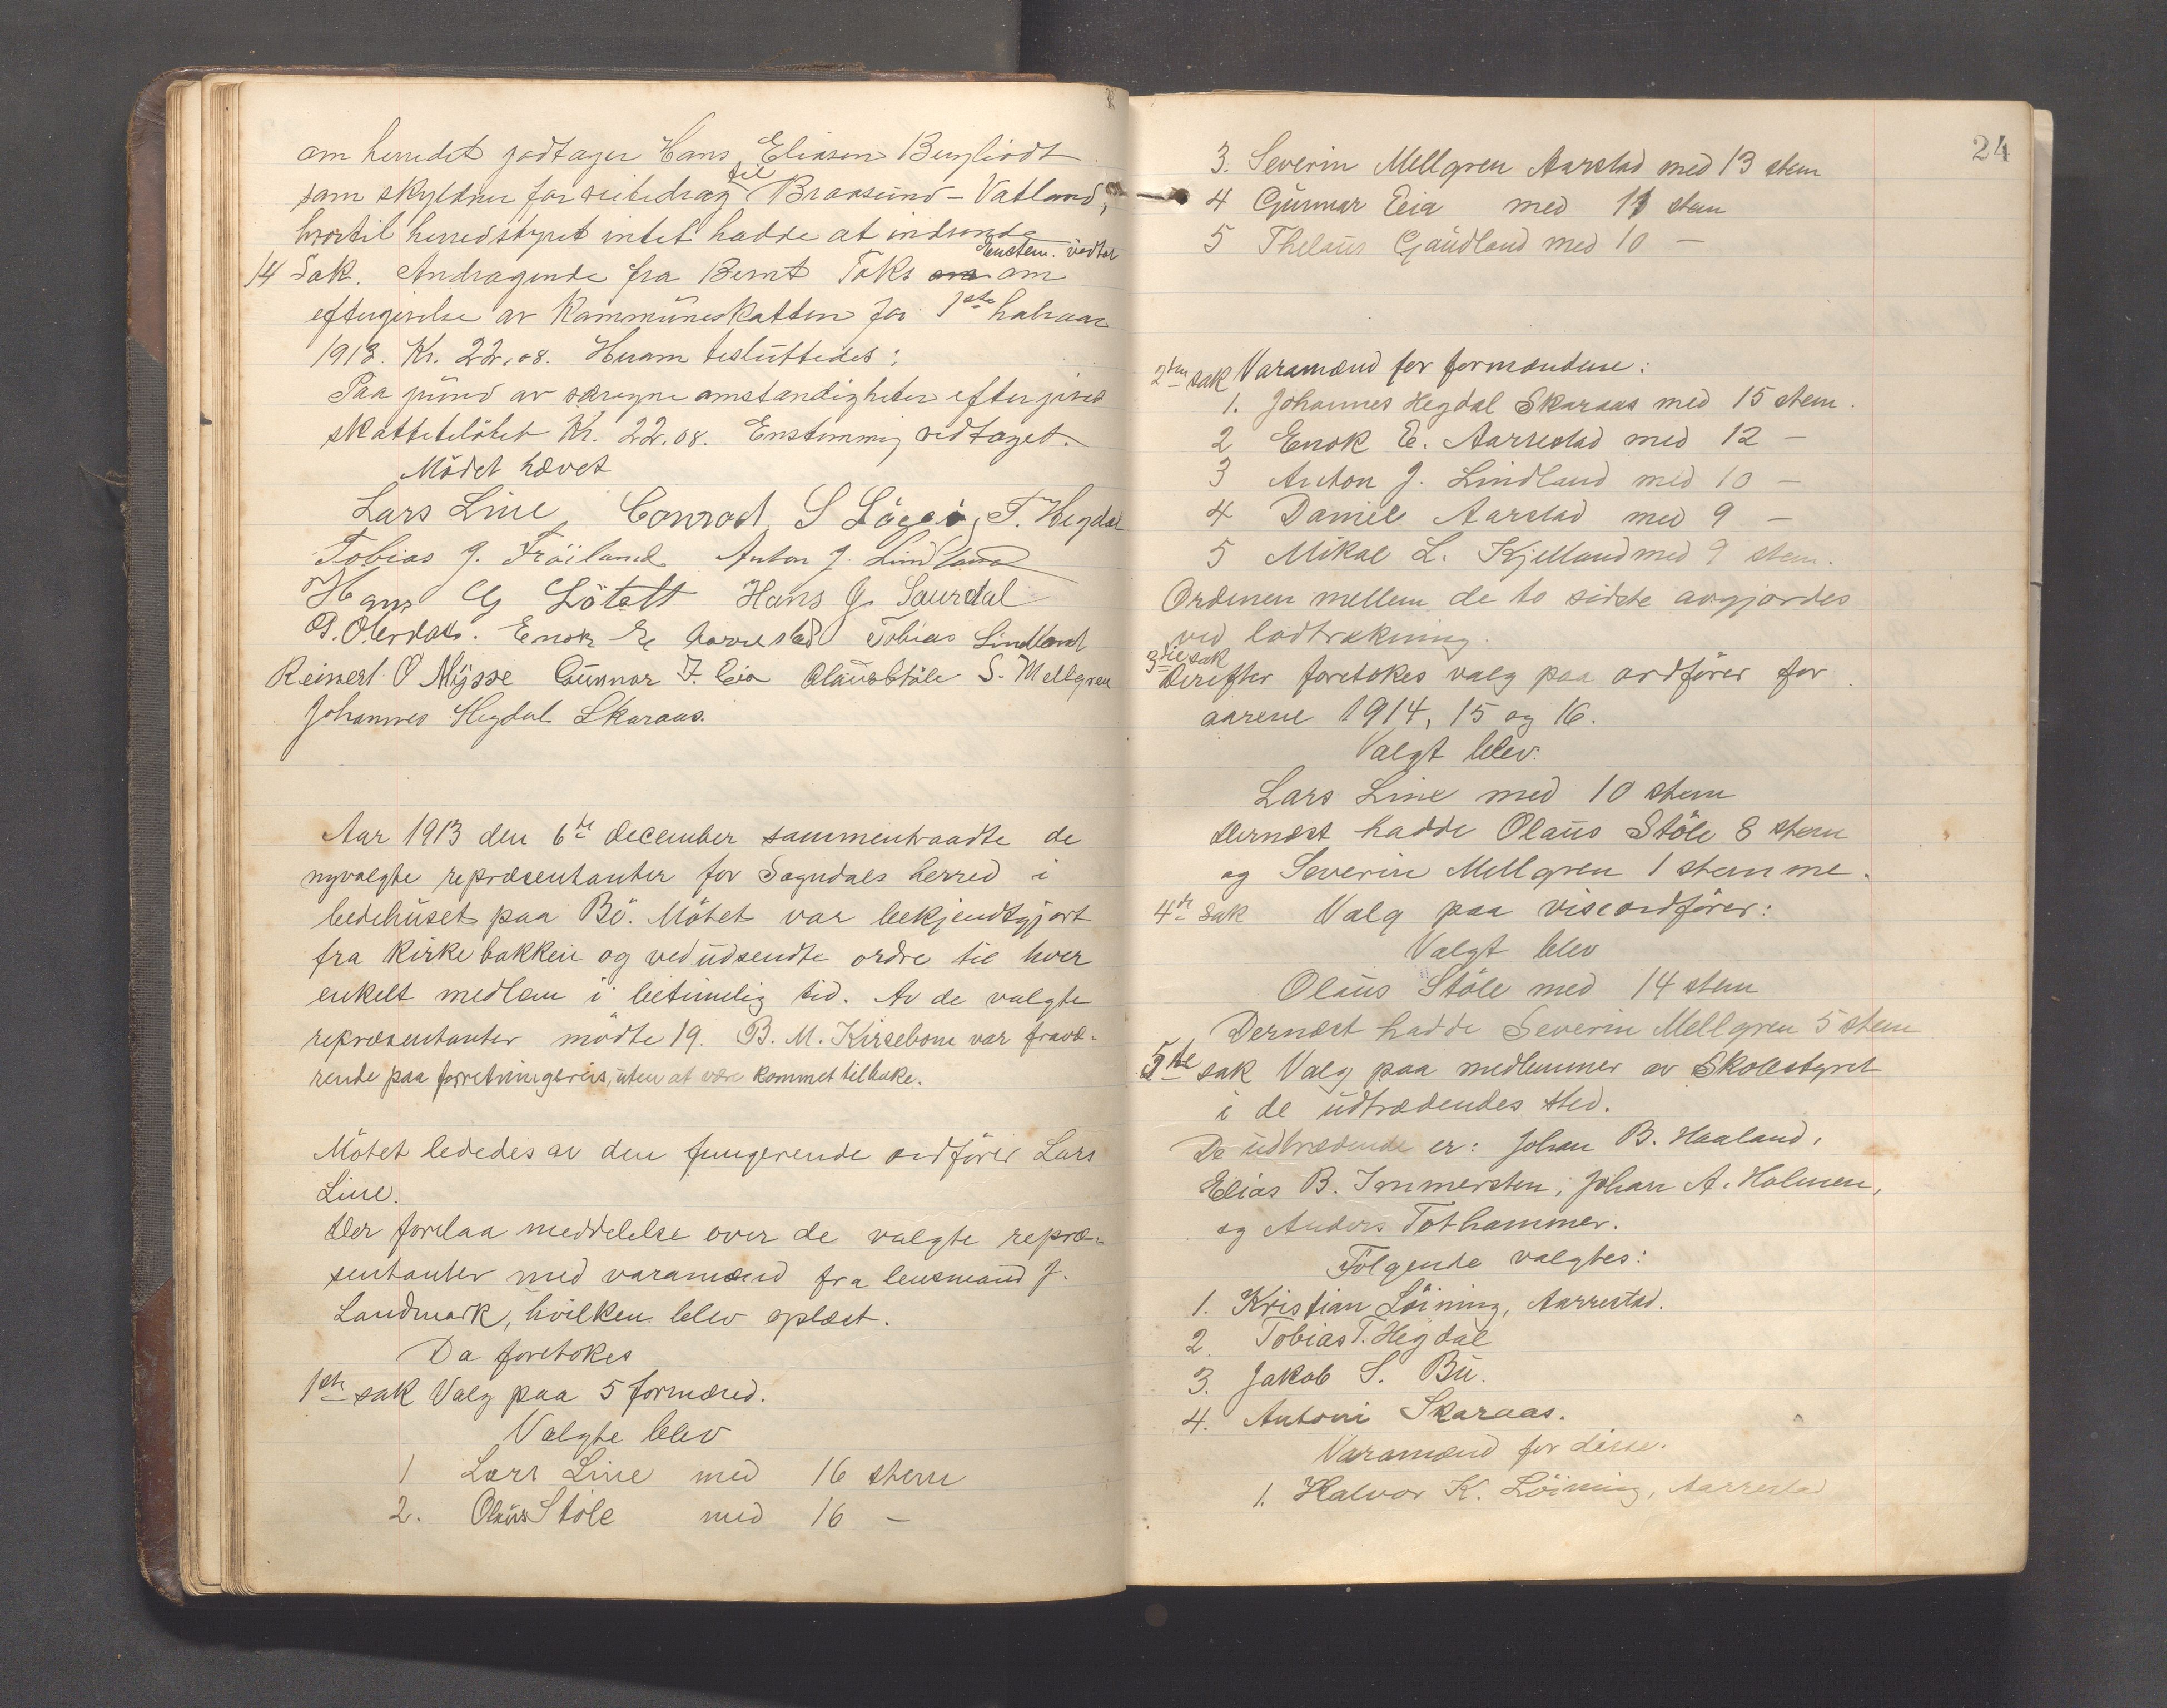 om herredet godtager Hans Eliasen Bergliodt
som skyldner for veibidrag til Braasund - Vatland,
hvortil herredstyret intet hadde at indvende
Enstem. vedtat
14 Sak. Andragende fra Bernt Toks om
eftergivelse av Kommuneskatten for 1ste halvaar
1913. Kr. 22,08. Hvorom besluttedes:
Paa grund av særegne omstændigheter eftergives
skattebeløbet Kr. 22.08. Enstemmig vedtaget.
Mødet hævet
Lars Line, Conrad S Løgei, T. Hegdal
Tobias J. Frøiland Anton J. Lindland
Hans G Løtoft Hans J. Saurdal
Enok E Aarrestad Tobias Lindland
Reinert O Mysse Gunnar T. Eia Olaus Støle S. Mellgren
Johannes Hegdal Skaraas.
Aar 1913 den 6te december sammentraadte de
nyvalgte repræsentanter for Sogndals herred i
bedehuset paa Bø. Møtet var bekjendtgjort
fra kirkebakken og ved udsendte ordre til hver
enkelt medlem i betimelig tid. Av de valgte
repræsentanter mødte 19. B. M. Kirsebom var fravæ-
rende paa forretningsreis, uten at være kommet tilbake.
Møtet lededes av den fungerende ordfører Lars
Line.
Der forelaa meddelelse over de valgte repræ-
sentanter med varamænd fra lensmand J.
Landmark, hvilken blev oplæst.
Da foretokes
1ste sak Valg paa 5 formænd.
Valgte blev
1 Lars Line med 16 stem
2. Olaus Støle med 16 -
24
3. Severin Mellgren Aarstad med 13 stem
4 Gunnar Eia med 11 stem
5 Thelaus Gaudland med 10 -
2den sak Varamænd for formændene:
1. Johannes Hegdal Skaraas med 15 stem.
2 Enok E. Aarrestad med 12 -
3 Anton J. Lindland med 10 -
4 Daniel Aarstad med 9 -
5 Mikal L. Kjelland med 9 stem.
Ordenen mellem de to sidste avgjordes
ved lodtrækning.
3die sak
Derefter foretokes valg paa ordfører for
aarene 1914, 15 og 16.
Valgt blev.
Lars Line med 10 stem
Dernæst hadde Olaus Støle 8 stem
og Severin Mellgren 1 stemme.
4de sak Valg paa viseordfører:
Valgt blev
Olaus Støle med 14 stem
Dernæst hadde Severin Mellgren 5 stem
5te sak Valg paa medlemmer av Skolestyret
i de udtrædendes sted.
De udtrædende er: Johan B. Haaland,
Elias B. Immerstein, Johan A. Holmen,
og Anders Tothammer.
Følgende valgtes:
1. Kristian Løining, Aarrestad.
2 Tobias T. Hegdal
3. Jakob S. Bu.
4. Antoni Skaraas.
Varamænd for disse.
1. Halvor K. Løining, Aarrestad